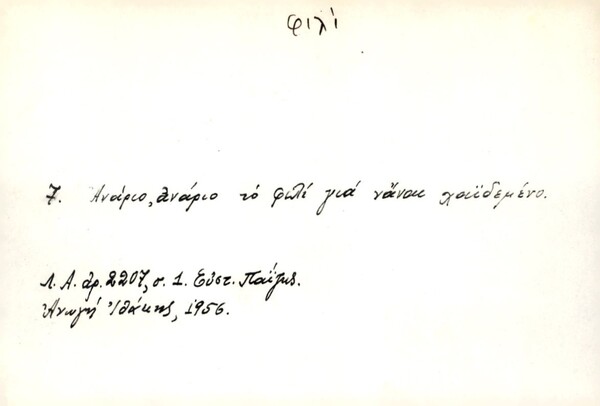 φιλί
7. Ανάριο, ανάριο τό φιλί γιά νἆναι χαϊδεμένο.
Λ. Α. ἀρ. 2207, σ. 1. Εὐστ. Παΐζης.
Ἀνωγή Ἰθάκης, 1956.